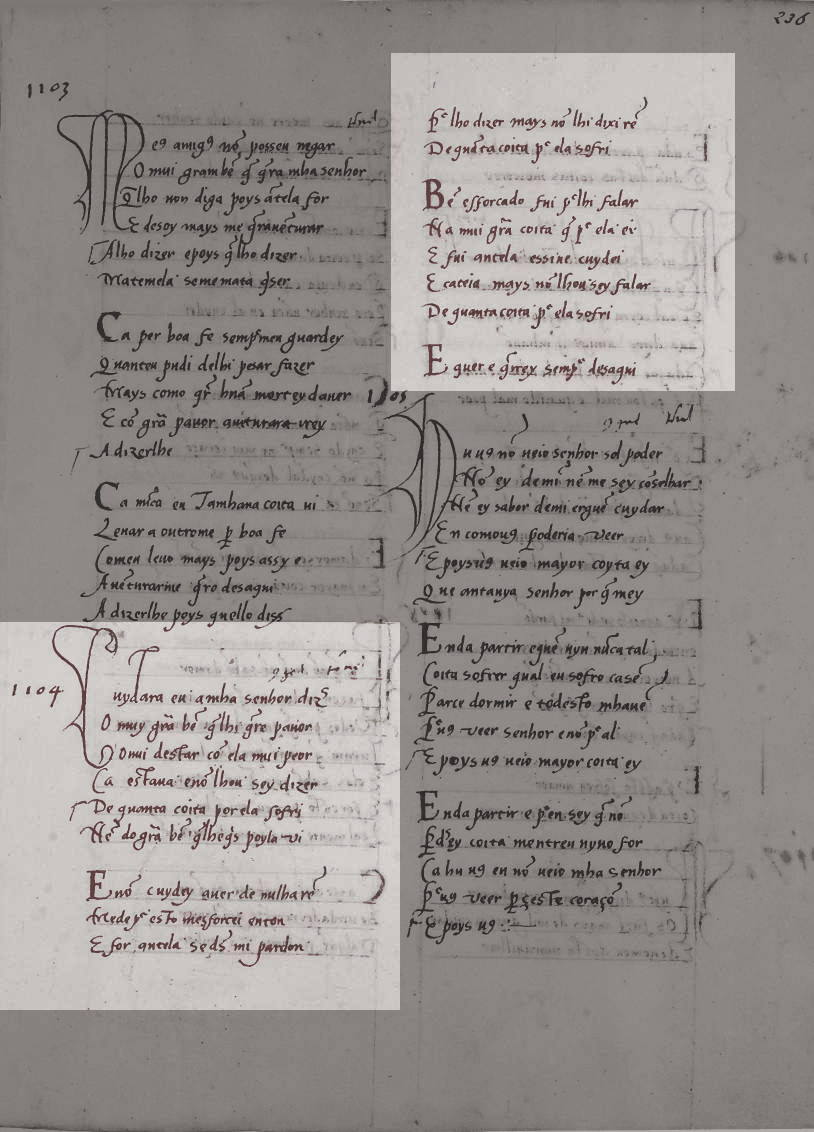 1103
Meg amigꝯ nõ possou negar
O mui grambẽ q̃ q̃ra mha senhor
Q̃lho non diga poys ãtela for
E desoy mays me q̃rauẽturar
Alho dizer epoys q̃lho dizer
Matemela semematа q̃ser
Ca per boa fe sempᵉmen guardey
Quanteu pudi delhi pesar fazer
Mays como q̃r hũa mortey dauer
E cõ grã pauor auẽturarvrey
A dizerlhe
Ca nũca eu Tamhana coita ui
Leuar a outrome ꝑ boa fe
Comeu leuo mays poys assy e
Auẽturarme q̃ro desaqui
A dizerlhe poys quello diss
1104
Cuydara eu amha senhor diz̃
O muy grã bẽ q̃ lhi q̃re pauor
Nomui destar cõ ela mui peor
Ca estaua enõ lhou sey dizer
De quanta coita porela sofrij
Nẽ do grã bẽ q̃lheq̃s poyla vi
Enõ cuydey auer de nulha rẽ
Mede pᵉ esto mesforcei enton
E for antela se ds̃ mi pardon
236
Pᵉ lho dizer mays nõ lhi dixi rẽ
De quãta coita pᵉ ela sofri
Bẽ esforcado fui pᵉlhi falar
Na mui grã coita q̃ pᵉ ela ei
E fui antela essine cuydei
E cateia mays nõ lhou sey falar
De quanta coita pᵉ ela sofri
E quer e q̃rrey sempᵉ desaqui
1105
Quꝯ nõ ueio senhor sol poder
Nõ ey demĩ nẽ me sey cõselhar
Nẽ ey sabor demi erguẽ cuydar
En comouꝯ poderia veer
E poys uꝯ nõ ueio mayor coyta ey
Que antanya senhor por q̃ mey
Enda partir equẽ uyu nũca tal
Coita sofrer qual eu sofro casẽ
Parce dormir e todesto mhauẽ
Pᵉuꝯ veer senhor enõ pᵉ al
E poys uꝯ ueio mayor coita ey
Enda partir e pᵉen sey q̃ nõ
ꝑdrey coita mentreu uyuo for
Ca hu uꝯ eu nõ ueio mha senhor
Pᵉuꝯ veer ꝑẽ este coraçõ
E poys uꝯ